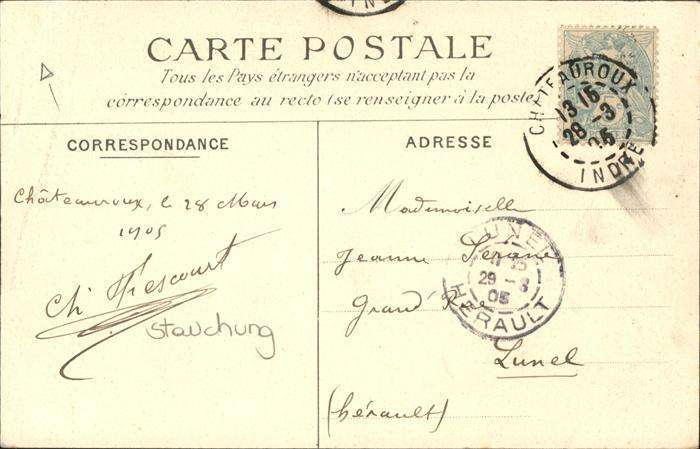 INDRE
CARTE POSTALE
Tous les Pays étrangers n'acceptant pas la
correspondance au recto (se renseigner à la poste)
CORRESPONDANCE
ADRESSE
Châteauroux, le 28 Mars
1905
Ch. Fiescourt
Stauchung
CHATEAUROUX
13 15
28 - 3
05
INDRE
Mademoiselle
Jeanne
Grand'Rue
Lunel
(hérault)
LUNEL
15
29 - 3
05
HERAULT